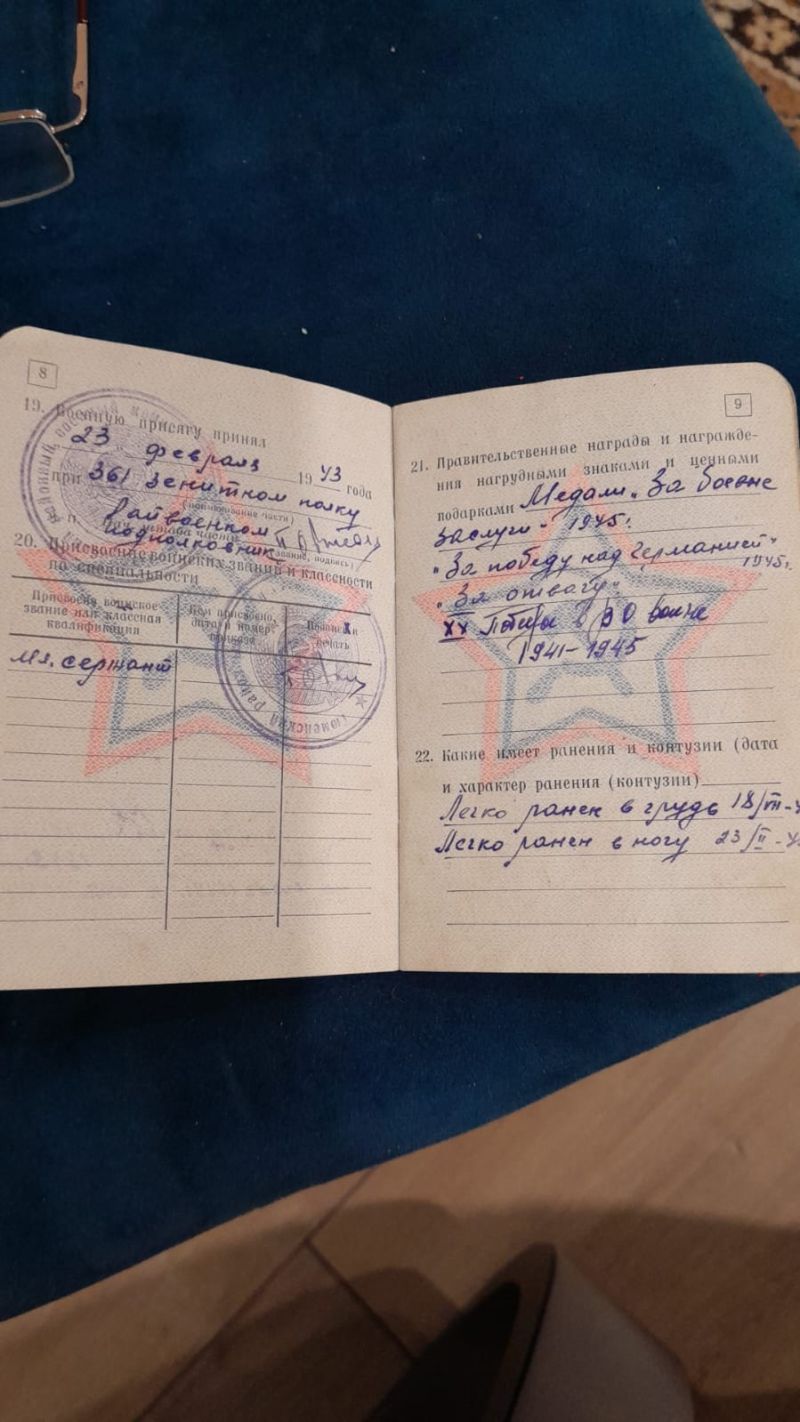 8
19. Военную присягу принял
23 февраля 1943 года
при 361 зенитном полку
(наименование части)
п. Нач. штаба части
Райвоенком
подполковник
(звание, подпись)
20. Присвоение воинских званий и классности
по специальности
Присвоено воинское
звание или классная
квалификация
Кем присвоено,
дата и номер
приказа
Подпись и
печать
Мл. сержант
9
21. Правительственные награды и награжде-
ния нагрудными знаками и ценными
подарками Медали „За боевые
заслуги" 1945г.
"За победу над Германией"
1945г.
"За отвагу"
XX Победы в ВО войне
1941-1945
22. Какие имеет ранения и контузии (дата
и характер ранения (контузии)
Легко ранен в грудь 18/III-4
Легко ранен в ногу 23/II-4